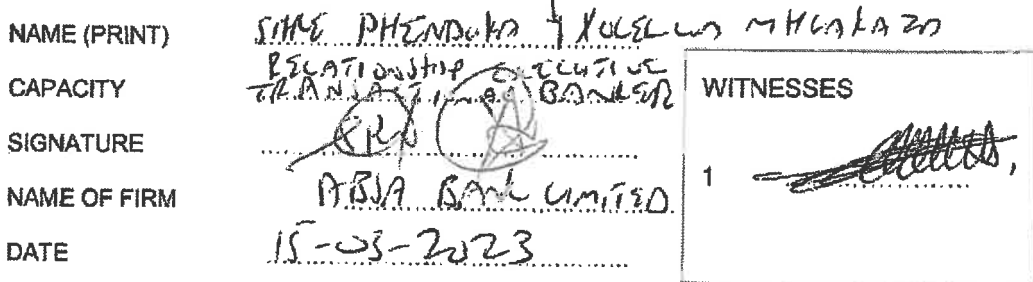 NAME (PRINT) SIHLE PHENDUKA & XOLELWA MHLAKAZA
CAPACITY RELATIONSHIP EXECUTIVE
TRANSACTIONAL BANKER
SIGNATURE
NAME OF FIRM ABSA BANK LIMITED
DATE 15-03-2023
WITNESSES
1